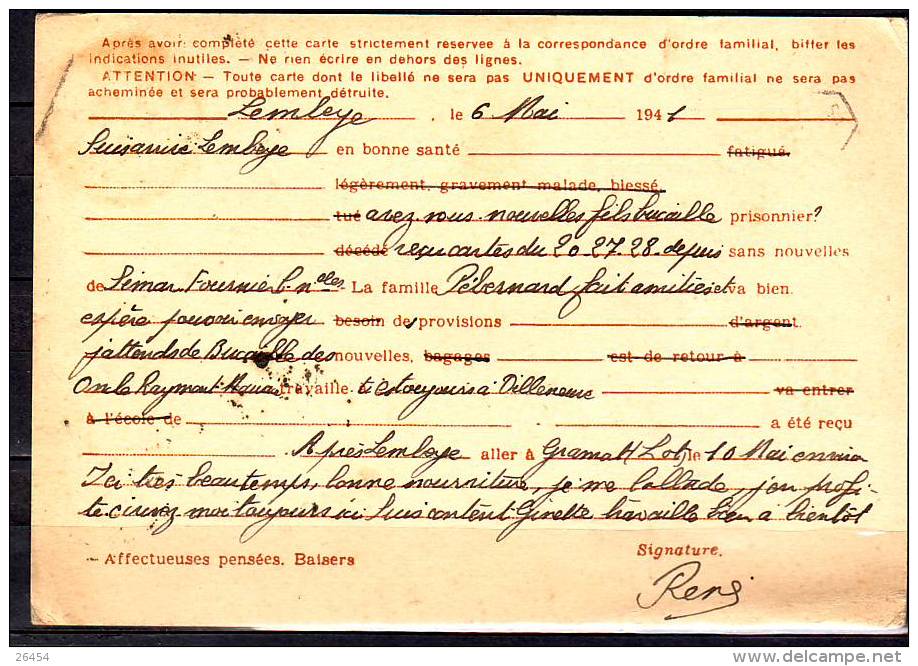 Après avoir complété cette carte strictement réservée à la correspondance d'ordre familial, biffer les
indications inutiles. — Ne rien écrire en dehors des lignes.
ATTENTION — Toute carte dont le libellé ne sera pas UNIQUEMENT d'ordre familial ne sera pas
acheminée et sera probablement détruite.
Lembeye, le 6 Mai 1941
Lembeye en bonne santé fatigué.
légèrement, gravement malade, blessé
tué avez vous nouvelles fils bucaille prisonnier?
décédé reçu cartes du 20.27.28. depuis sans nouvelles
de La famille Pébernard fait amitiés et va bien.
espère pouvoir envoyer besoin de provisions d'argent.
j'attends de Bucaille des nouvelles, bagages est de retour à
Oncle Raymont travaille toujours à Villeneuve va entrer
à l'école de a été reçu
Après Lembeye aller à Gramat Lot le 10 Mai environ
Ici très beau temps, bonne nourriture, je me ballade, j'en profi-
te écrivez moi toujours ici suis content Ginette travaille bien à bientôt
— Affectueuses pensées. Baisers
Signature.
René
26454
delcampe.net